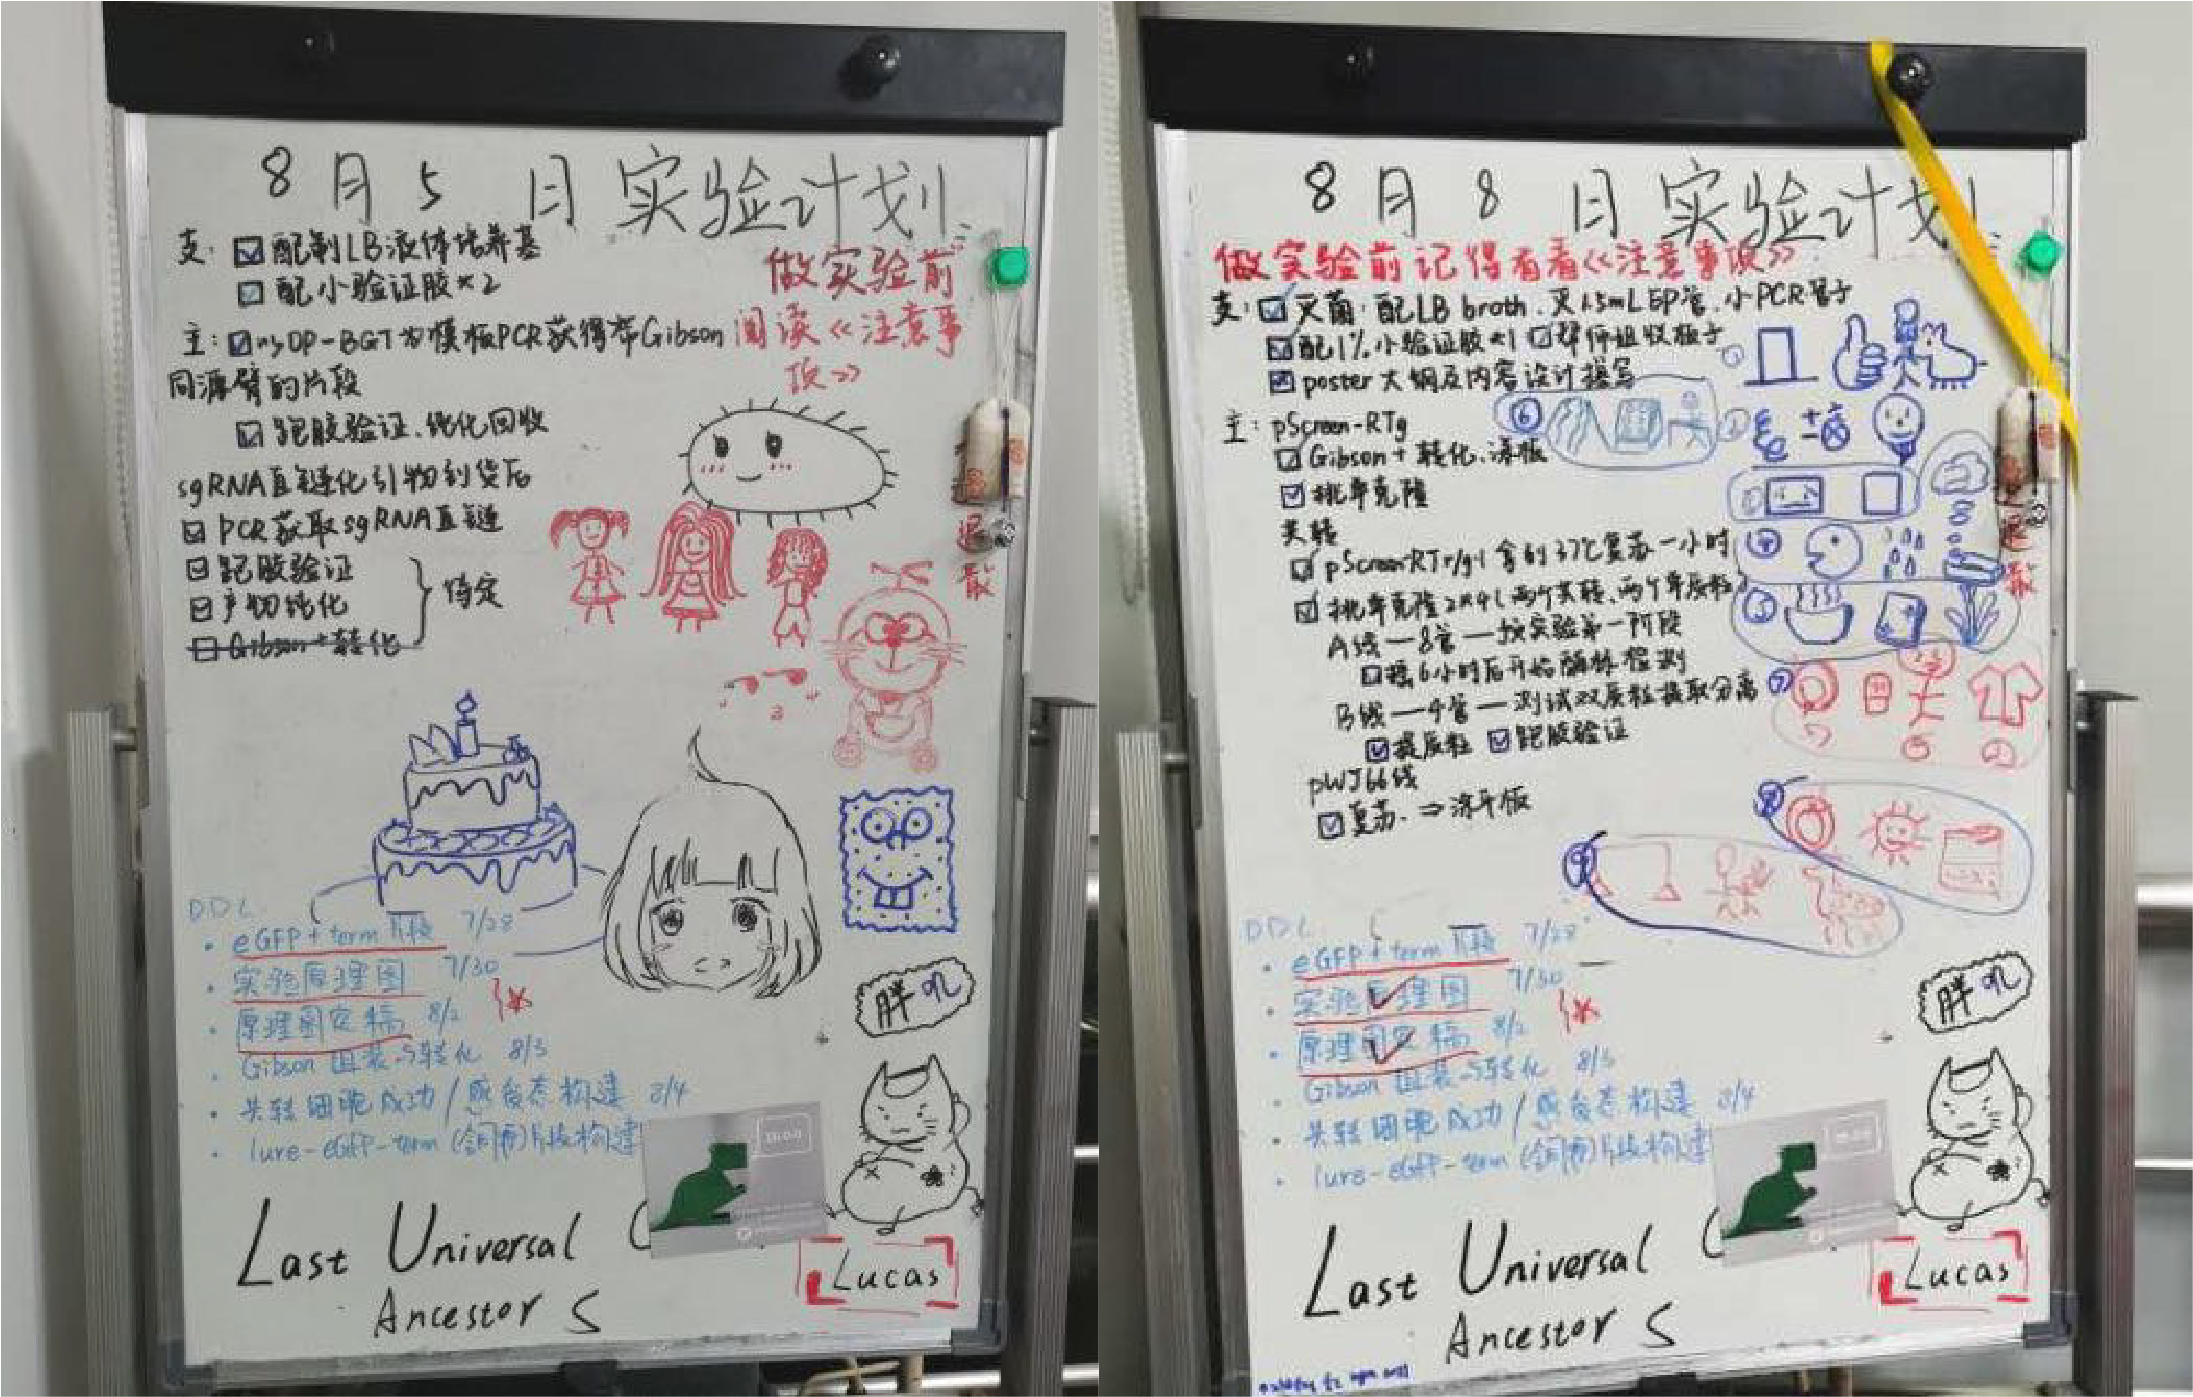 8月5日实验计划
支: 配制LB液体培养基
配小验证胶*2
做实验前
阅读《注意事
项》
主: DP-BGT为模板PCR获得带Gibson
同源臂的片段
跑胶验证、纯化回收
sgRNA直链化引物到货后
PCR获取sgRNA直链
跑胶验证
纯化
Gibson+转化
待定
退
散
DDL
· eGFP+term片段 7/28
· 实验原理图 7/30
· 原理图定稿 8/2
· Gibson组装与转化 8/3
· 共转细胞成功/感受态构建 8/4
· lure-eGFP-term(饲雨)片段构建
胖叽
Last Universal
Ancestor S
Lucas
8月8日实验计划
做实验前记得看看《注意事项》
支: 灭菌: 配LB broth、灭1.5mL EP管、小PCR管子
配1%小验证胶*1
poster大纲及内容设计撰写
主: pScreen-RTg
Gibson+转化、涂板
挑单克隆
共转
pScreen-RTr/g-1 37℃复苏一小时
挑单克隆2*4(两个共转、两个单质粒)
A线—8管—按实验第一阶段
摇6小时后开始酶标检测
B线—4管—测试双质粒提取分离
提质粒 跑胶验证
pWJ66线
复苏. ⇒涂平板
退
散
DDL
· eGFP+term片段 7/28
· 实验原理图 7/30
· 原理图定稿 8/2
· Gibson组装与转化 8/3
· 共转细胞成功/感受态构建 8/4
· lure-eGFP-term(饲雨)片段构建
胖叽
Last Universal
Ancestor S
Lucas